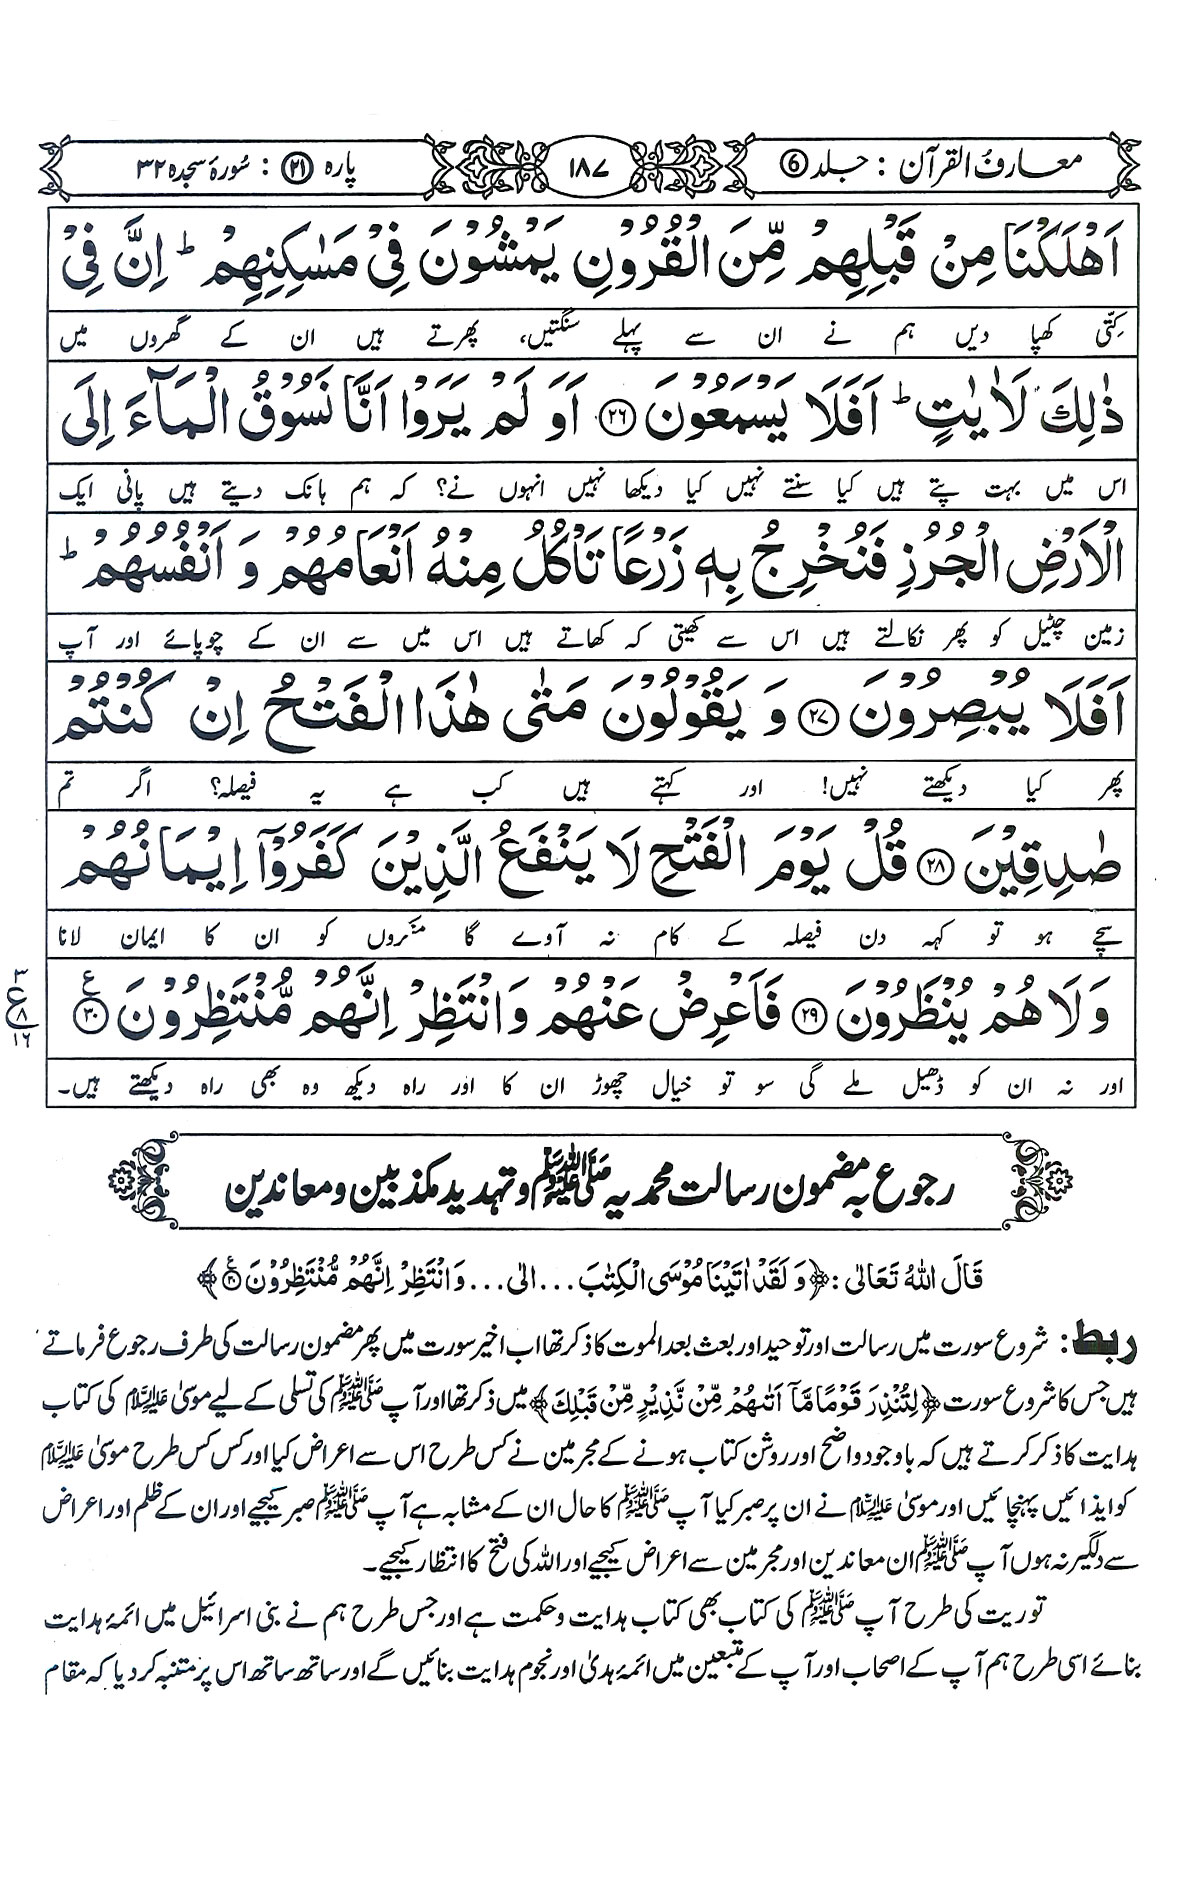 معارف القرآن : جلد ⑥
۱۸۷
پارہ ㉑ : سُورۂ سجدہ ۳۲
اَهْلَكْنَا مِنْ قَبْلِهِمْ مِّنَ الْقُرُوْنِ يَمْشُوْنَ فِيْ مَسٰكِنِهِمْ ؕ اِنَّ فِيْ
کتی کھپا دیں ہم نے ان سے پہلے سنگتیں، پھرتے ہیں ان کے گھروں میں
ذٰلِكَ لَاٰيٰتٍ ؕ اَفَلَا يَسْمَعُوْنَ ۲۶ اَوَ لَمْ يَرَوْا اَنَّا نَسُوْقُ الْمَآءَ اِلَى
اس میں بہت پتے ہیں کیا سنتے نہیں کیا دیکھا نہیں انہوں نے؟ کہ ہم ہانک دیتے ہیں پانی ایک
الْاَرْضِ الْجُرُزِ فَنُخْرِجُ بِهٖ زَرْعًا تَاْكُلُ مِنْهُ اَنْعَامُهُمْ وَ اَنْفُسُهُمْ ؕ
زمین چٹیل کو پھر نکالتے ہیں اس سے کھیتی کہ کھاتے ہیں اس میں سے ان کے چوپائے اور آپ
اَفَلَا يُبْصِرُوْنَ ۲۷ وَ يَقُوْلُوْنَ مَتٰى هٰذَا الْفَتْحُ اِنْ كُنْتُمْ
پھر کیا دیکھتے نہیں! اور کہتے ہیں کب ہے یہ فیصلہ؟ اگر تم
صٰدِقِيْنَ ۲۸ قُلْ يَوْمَ الْفَتْحِ لَا يَنْفَعُ الَّذِيْنَ كَفَرُوْٓا اِيْمَانُهُمْ
سچے ہو تو کہہ دن فیصلہ کے کام نہ آوے گا منکروں کو ان کا ایمان لانا
وَلَا هُمْ يُنْظَرُوْنَ ۲۹ فَاَعْرِضْ عَنْهُمْ وَانْتَظِرْ اِنَّهُمْ مُّنْتَظِرُوْنَ ۳۰ ع
۳
ع ۸
۱۶
اور نہ ان کو ڈھیل ملے گی سو تو خیال چھوڑ ان کا اور راہ دیکھ وہ بھی راہ دیکھتے ہیں۔
رجوع بہ مضمون رسالت محمدیہ ﷺ وتہدید مکذبین ومعاندین
قَالَ اللهُ تَعَالٰى : ﴿وَلَقَدْ اٰتَيْنَا مُوْسَى الْكِتٰبَ ... الىٰ ... وَانْتَظِرْ اِنَّهُمْ مُّنْتَظِرُوْنَ ۳۰﴾
ربط: شروع سورت میں رسالت اور توحید اور بعث بعد الموت کا ذکر تھا اب اخیر سورت میں پھر مضمون رسالت کی طرف رجوع فرماتے
ہیں جس کا شروع سورت ﴿لِتُنْذِرَ قَوْمًا مَّآ اَتٰىهُمْ مِّنْ نَّذِيْرٍ مِّنْ قَبْلِكَ﴾ میں ذکر تھا اور آپ ﷺ کی تسلی کے لیے موسیٰ علیہ السلام کی کتاب
ہدایت کا ذکر کرتے ہیں کہ باوجود واضح اور روشن کتاب ہونے کے مجرمین نے کس طرح اس سے اعراض کیا اور کس کس طرح موسیٰ علیہ السلام
کو ایذائیں پہنچائیں اور موسیٰ علیہ السلام نے ان پر صبر کیا آپ ﷺ کا حال ان کے مشابہ ہے آپ ﷺ صبر کیجیے اور ان کے ظلم اور اعراض
سے دلگیر نہ ہوں آپ ﷺ ان معاندین اور مجرمین سے اعراض کیجیے اور اللہ کی فتح کا انتظار کیجیے۔
توریت کی طرح آپ ﷺ کی کتاب بھی کتاب ہدایت وحکمت ہے اور جس طرح ہم نے بنی اسرائیل میں ائمۂ ہدایت
بنائے اسی طرح ہم آپ کے اصحاب اور آپ کے متبعین میں ائمۂ ہدیٰ اور نجوم ہدایت بنائیں گے اور ساتھ ساتھ اس پر متنبہ کر دیا کہ مقام